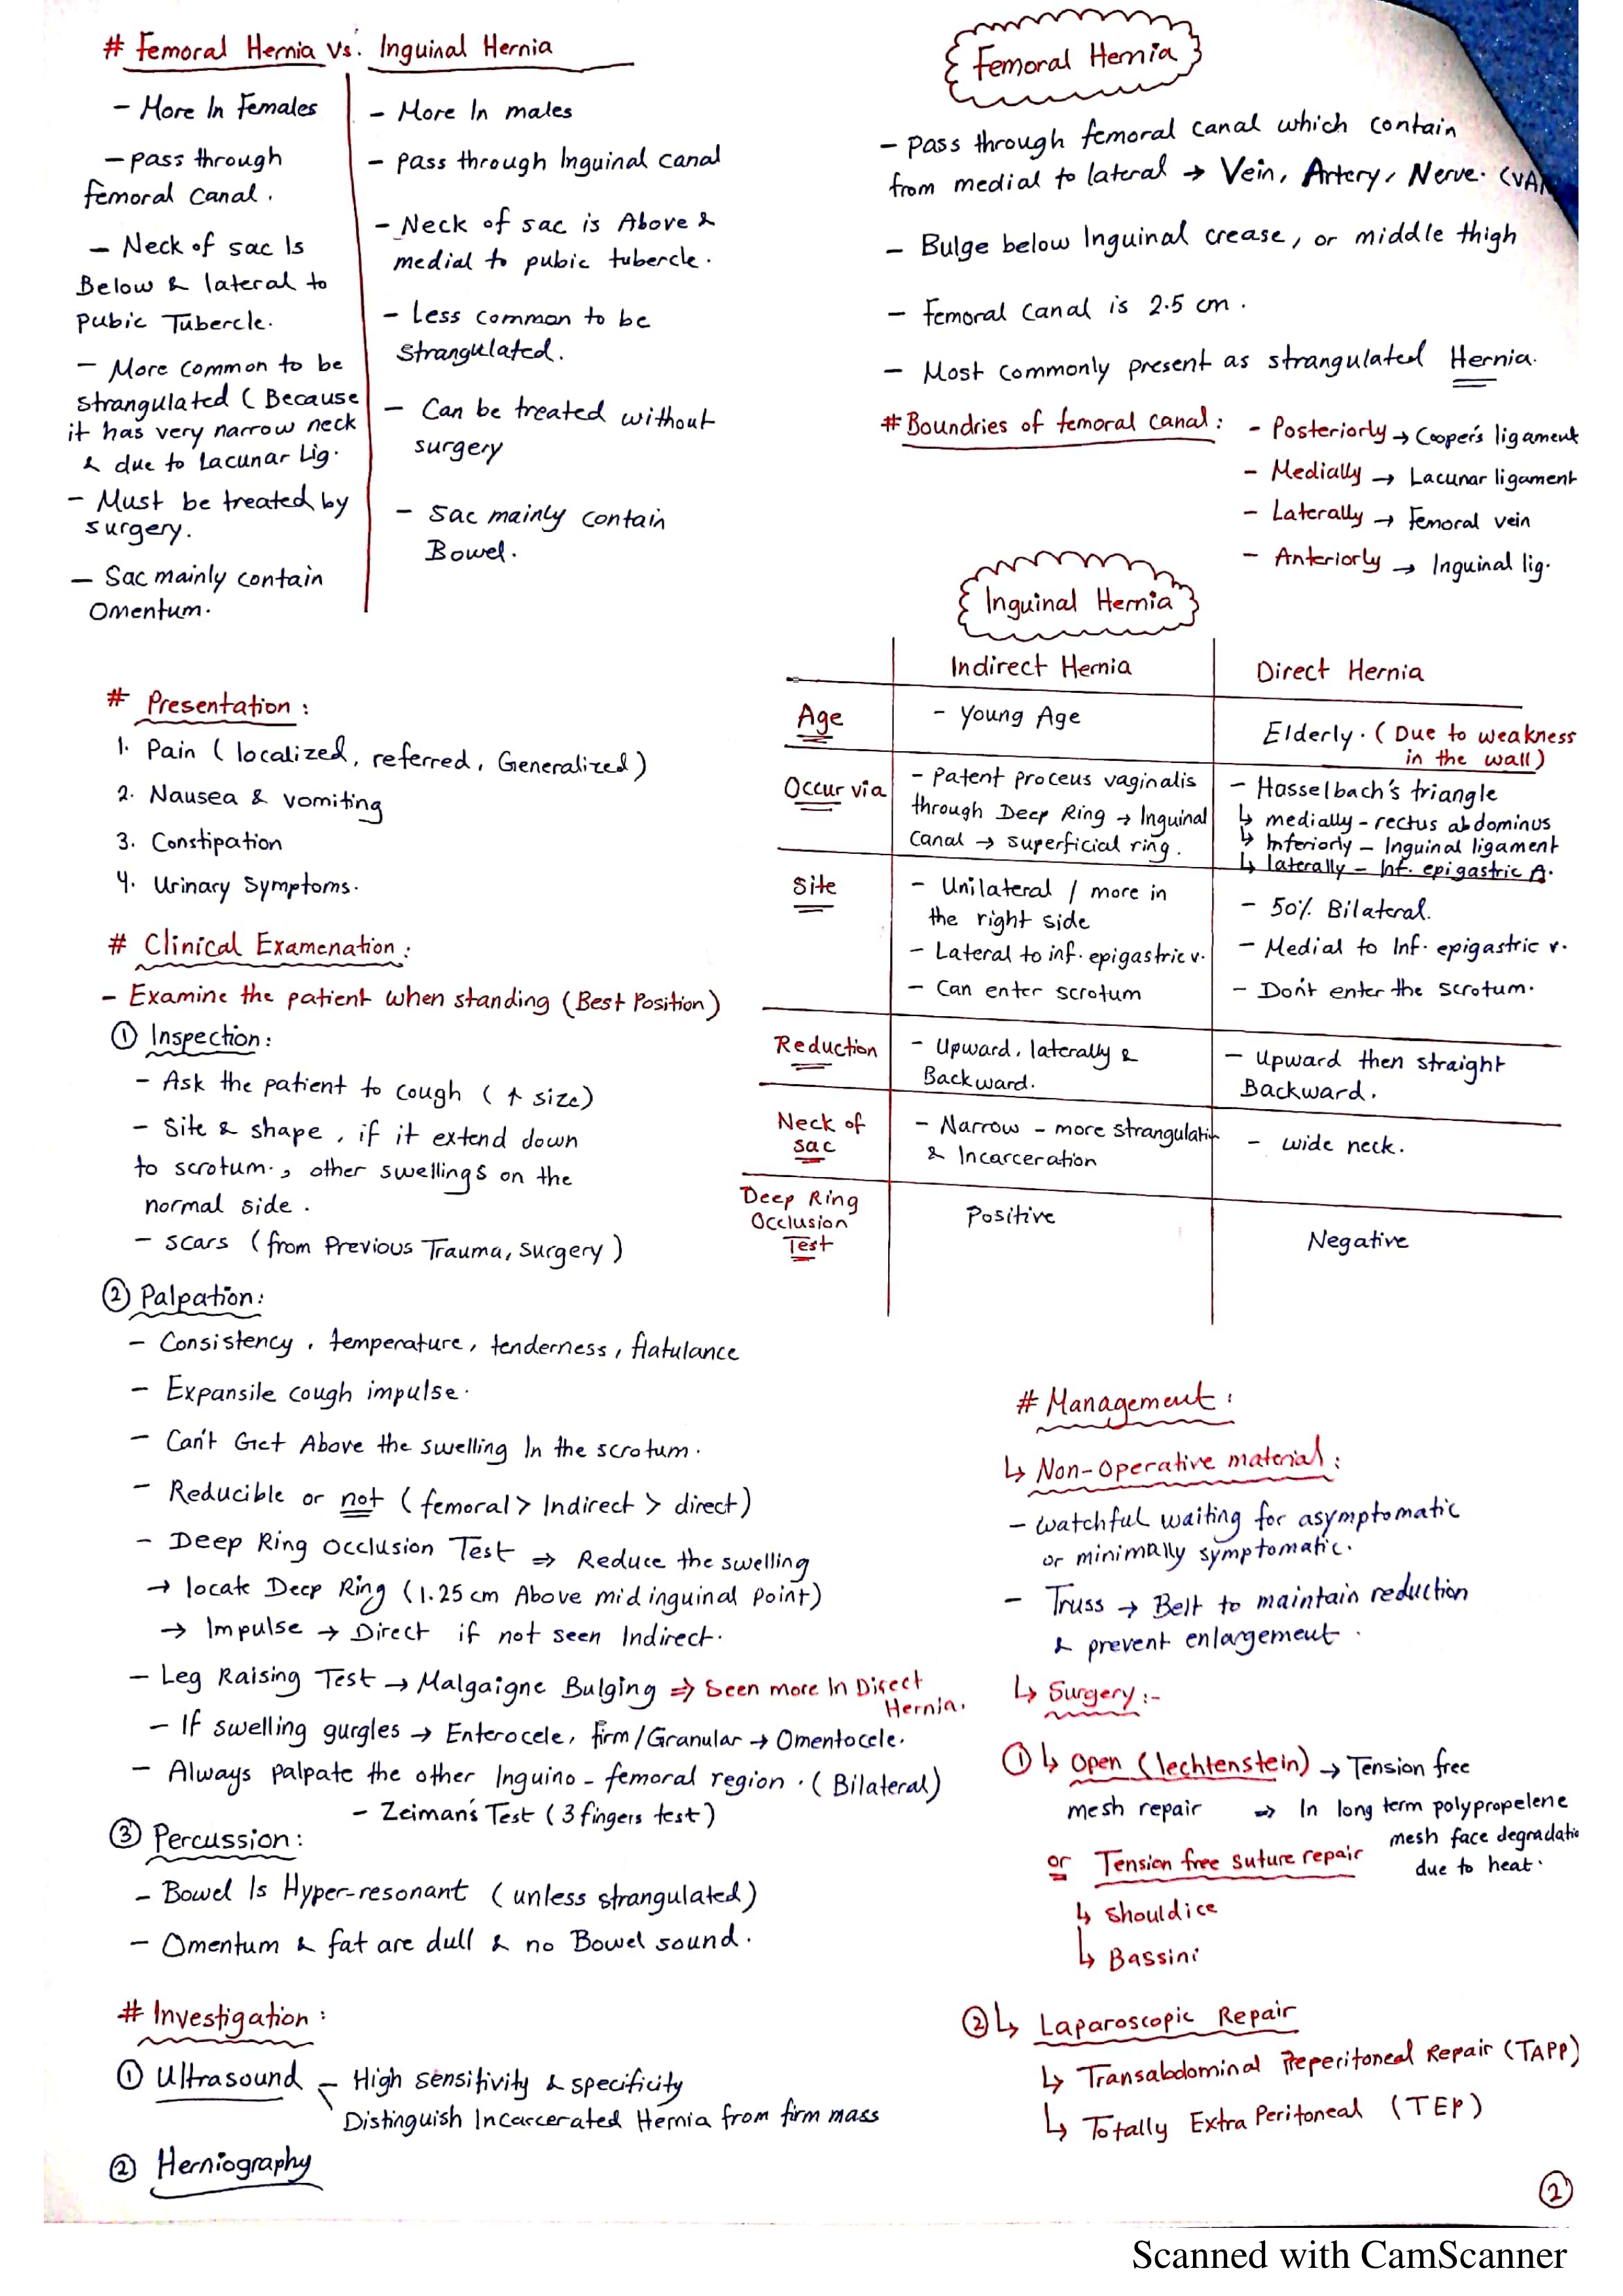 # Femoral Hernia Vs. Inguinal Hernia
- More In Females
- pass through
femoral Canal.
- Neck of sac Is
Below & lateral to
pubic Tubercle.
- More Common to be
strangulated ( Because
it has very narrow neck
& due to Lacunar Lig.
- Must be treated by
surgery.
- Sac mainly contain
Omentum.
- More In males
- pass through Inguinal canal
- Neck of sac is Above &
medial to pubic tubercle.
- Less common to be
strangulated.
- Can be treated without
surgery
- Sac mainly contain
Bowel.
# Presentation :
1. Pain ( localized, referred, Generalized )
2. Nausea & vomiting
3. Constipation
4. Urinary Symptoms.
# Clinical Examenation :
- Examine the patient when standing (Best Position)
① Inspection:
- Ask the patient to cough ( ↑ size)
- Site & shape, if it extend down
to scrotum., other swellings on the
normal side.
- scars (from Previous Trauma, surgery )
② Palpation:
- Consistency, temperature, tenderness, flatulance
- Expansile cough impulse.
- Can't Get Above the swelling In the scrotum.
- Reducible or not ( femoral > Indirect > direct)
- Deep Ring Occlusion Test ⇒ Reduce the swelling
→ locate Deep Ring (1.25 cm Above mid inguinal point)
→ Impulse → Direct if not seen Indirect.
- Leg Raising Test → Malgaigne Bulging ⇒ Seen more In Direct
Hernia.
- If swelling gurgles → Enterocele, firm/Granular → Omentocele.
- Always palpate the other Inguino-femoral region. ( Bilateral)
- Zeiman's Test ( 3 fingers test )
③ Percussion:
- Bowel Is Hyper-resonant ( unless strangulated)
- Omentum & fat are dull & no Bowel sound.
# Investigation :
① Ultrasound - High sensitivity & specificity
Distinguish Incarcerated Hernia from firm mass
② Herniography
Femoral Hernia
- pass through femoral canal which contain
from medial to lateral → Vein, Artery, Nerve. (VA
- Bulge below Inguinal crease, or middle thigh
- Femoral Canal is 2.5 cm.
- Most commonly present as strangulated Hernia.
# Boundries of femoral canal : - Posteriorly → Cooper's ligament
- Medially → Lacunar ligament
- Laterally → Femoral vein
- Anteriorly → Inguinal lig.
Inguinal Hernia
Indirect Hernia Direct Hernia
Age - Young Age Elderly. ( Due to weakness
in the wall)
Occur via - Patent proceus vaginalis
through Deep Ring → Inguinal
Canal → superficial ring.
- Hasselbach's triangle
↳ medially - rectus abdominus
↳ Inferiorly - Inguinal ligament
↳ laterally - Inf. epigastric A.
Site - Unilateral / more in
the right side
- Lateral to inf. epigastric v.
- Can enter scrotum
- 50% Bilateral.
- Medial to Inf. epigastric v.
- Don't enter the scrotum.
Reduction - Upward, laterally &
Backward.
- Upward then straight
Backward.
Neck of
sac
- Narrow - more strangulatin
& Incarceration
- wide neck.
Deep Ring
Occlusion
Test
Positive
Negative
# Management :
↳ Non-operative material :
- watchful waiting for asymptomatic
or minimally symptomatic.
- Truss → Belt to maintain reduction
& prevent enlargement.
↳ Surgery :-
① ↳ Open (lechtenstein) → Tension free
mesh repair ⇒ In long term polypropelene
mesh face degradatio
due to heat.
or Tension free suture repair
↳ Shouldice
↳ Bassini
② ↳ Laparoscopic Repair
↳ Transabdominal Preperitoneal Repair (TAPP)
↳ Totally Extra Peritoneal (TEP)
②
Scanned with CamScanner